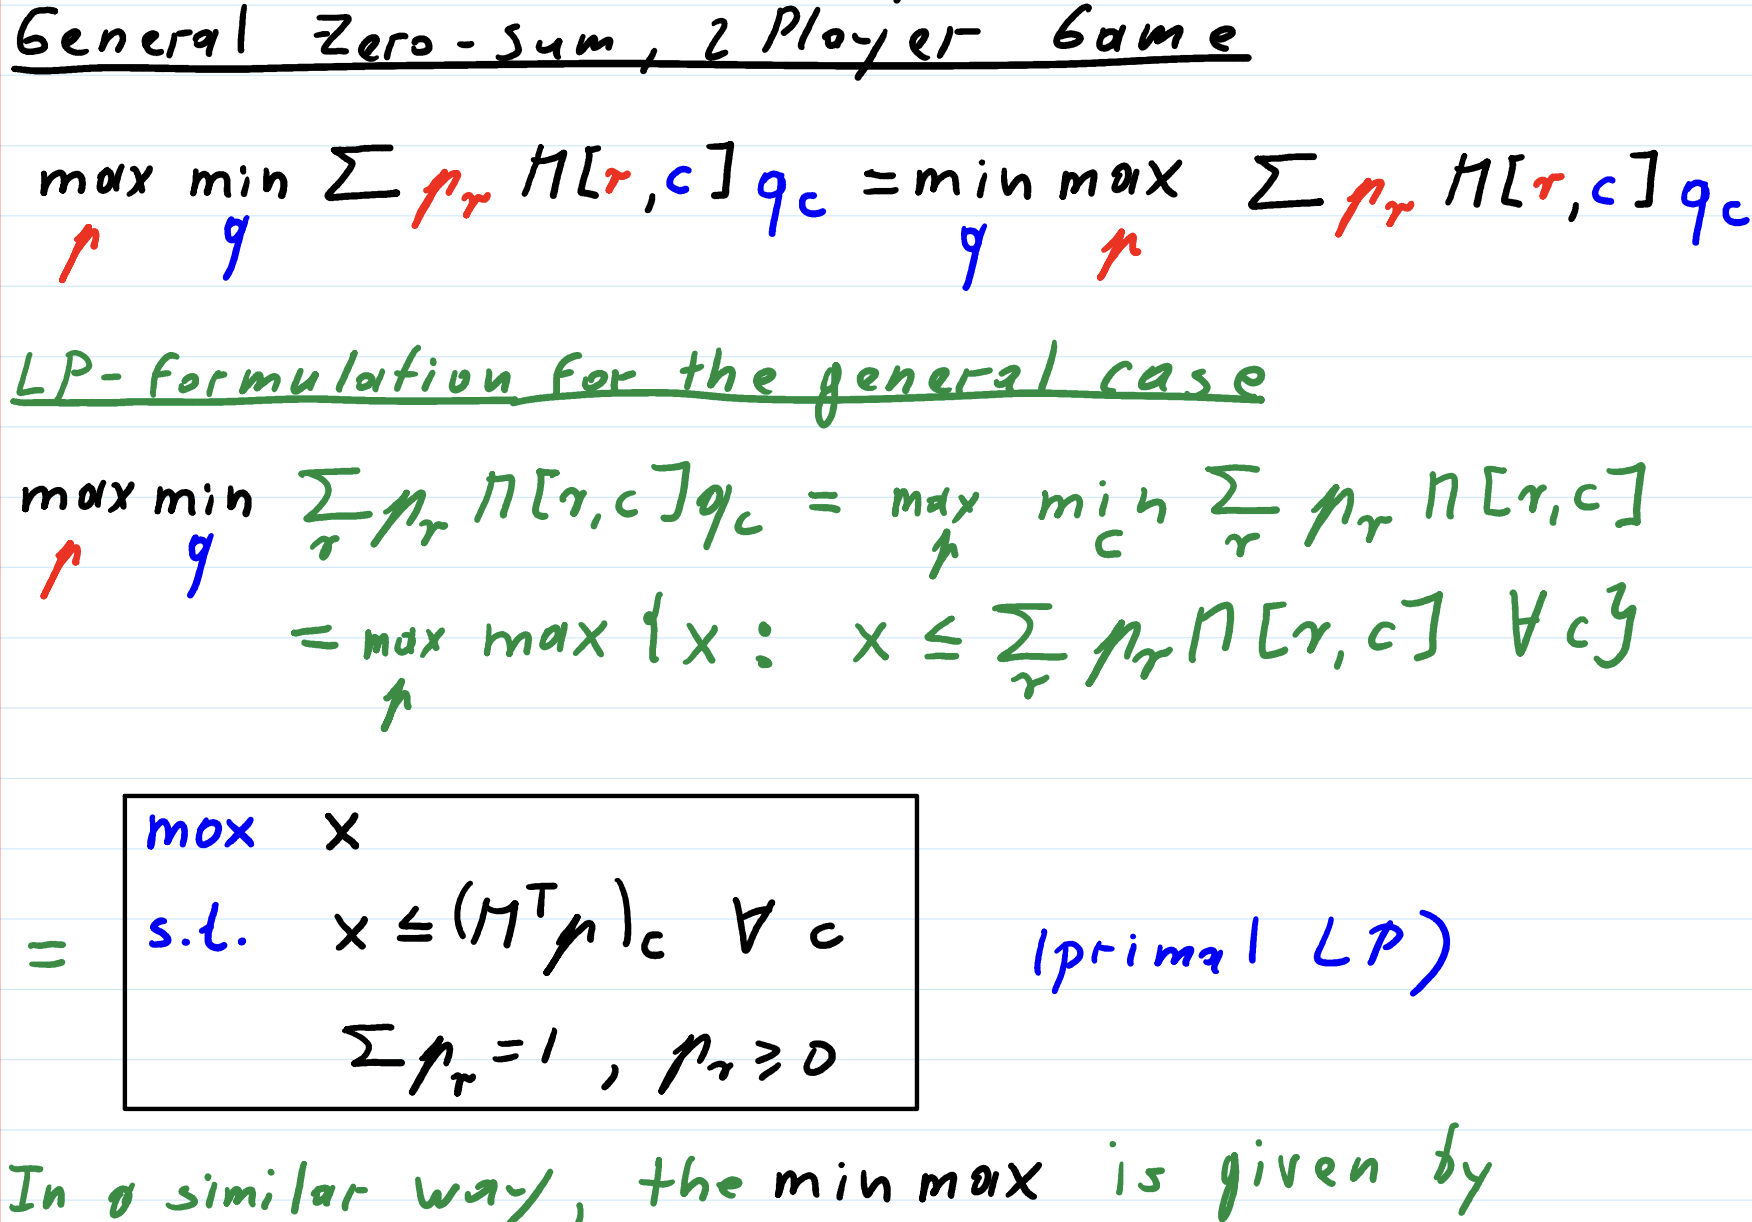 General Zero-sum, 2 Player Game
max min ∑ p_r M[r,c] q_c = min max ∑ p_r M[r,c] q_c
p q q p
LP-formulation for the general case
max min ∑ p_r M[r,c] q_c = max min ∑ p_r M[r,c]
p q r p c r
= max max {x : x ≤ ∑ p_r M[r,c] ∀ c}
p r
max x
= s.t. x ≤ (M^T p)_c ∀ c (primal LP)
∑ p_r = 1 , p_r ≥ 0
In a similar way, the min max is given by